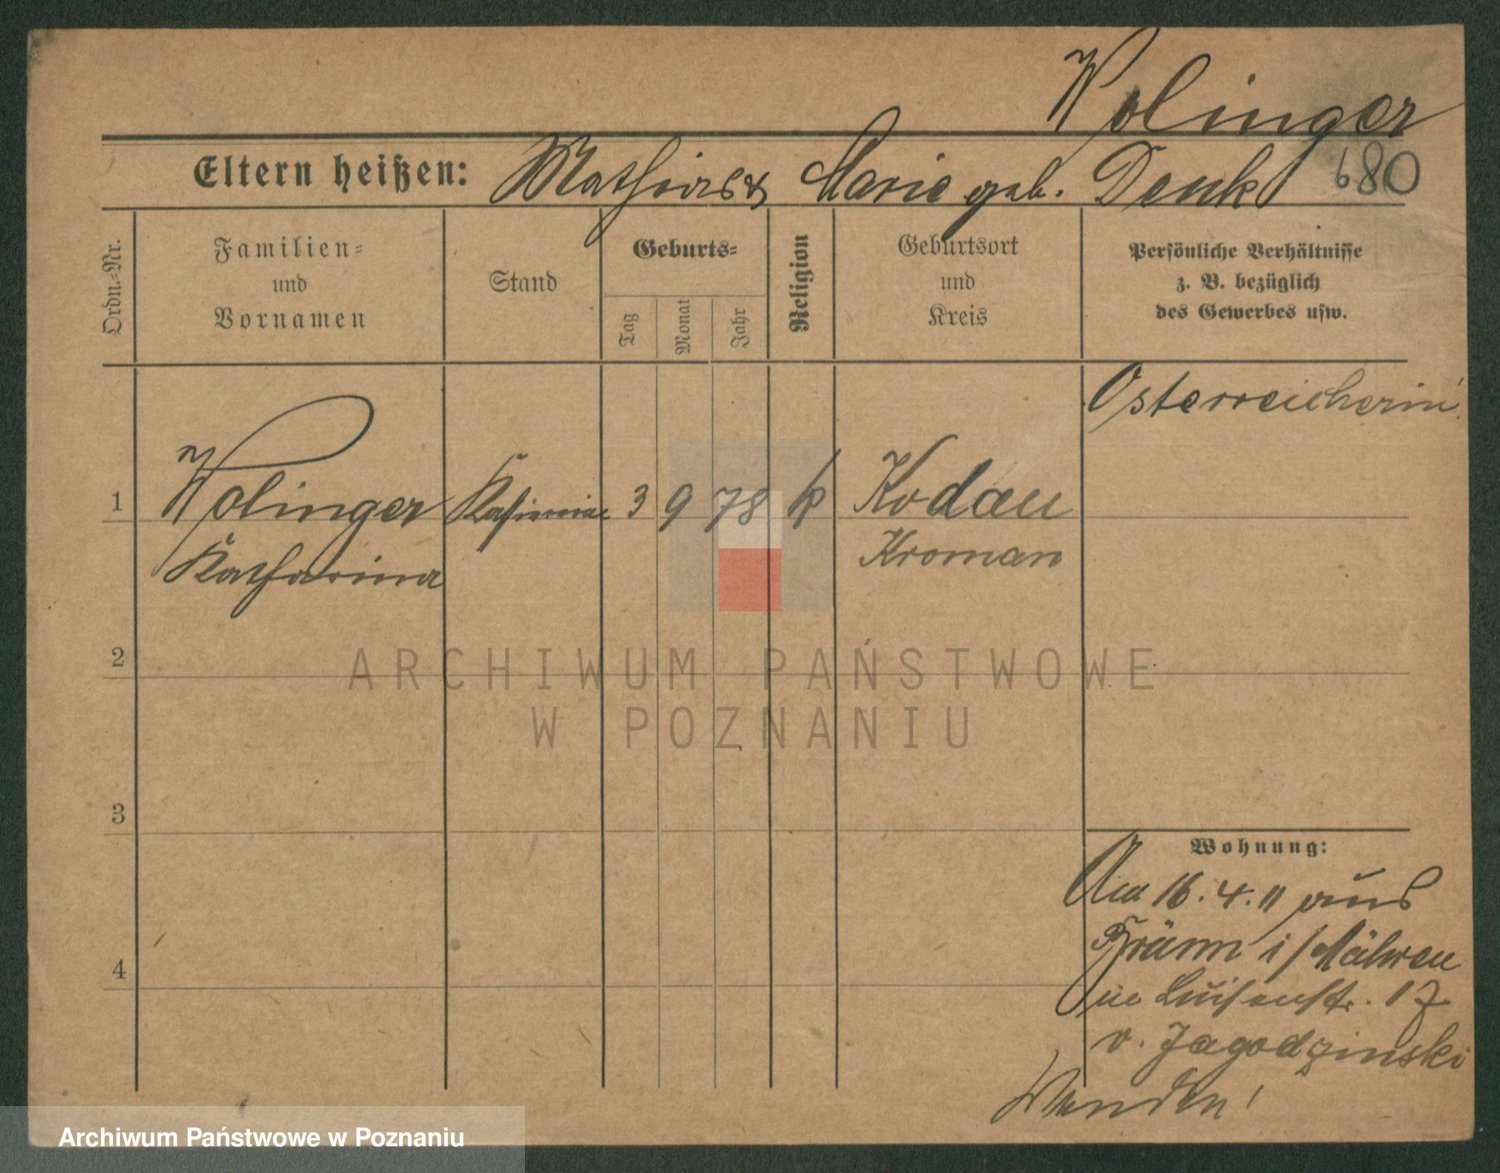 Wolinger
Eltern heißen: Mathias & Marie geb. Denk 680
Ordn.-Nr.
Familien-
und
Vornamen
Stand
Geburts-
Tag
Monat
Jahr
Religion
Geburtsort
und
Kreis
Persönliche Verhältnisse
z. B. bezüglich
des Gewerbes usw.
Österreicherin
1 Wolinger 3 9 78 k Kodau
Katharina Kroman
2
3
4
Wohnung:
Am 16.4.11 aus
Brünn i/Mähren
in Luisenstr. 17
v. Jagodzinski
Wenden!
ARCHIWUM PAŃSTWOWE
W POZNANIU
Archiwum Państwowe w Poznaniu